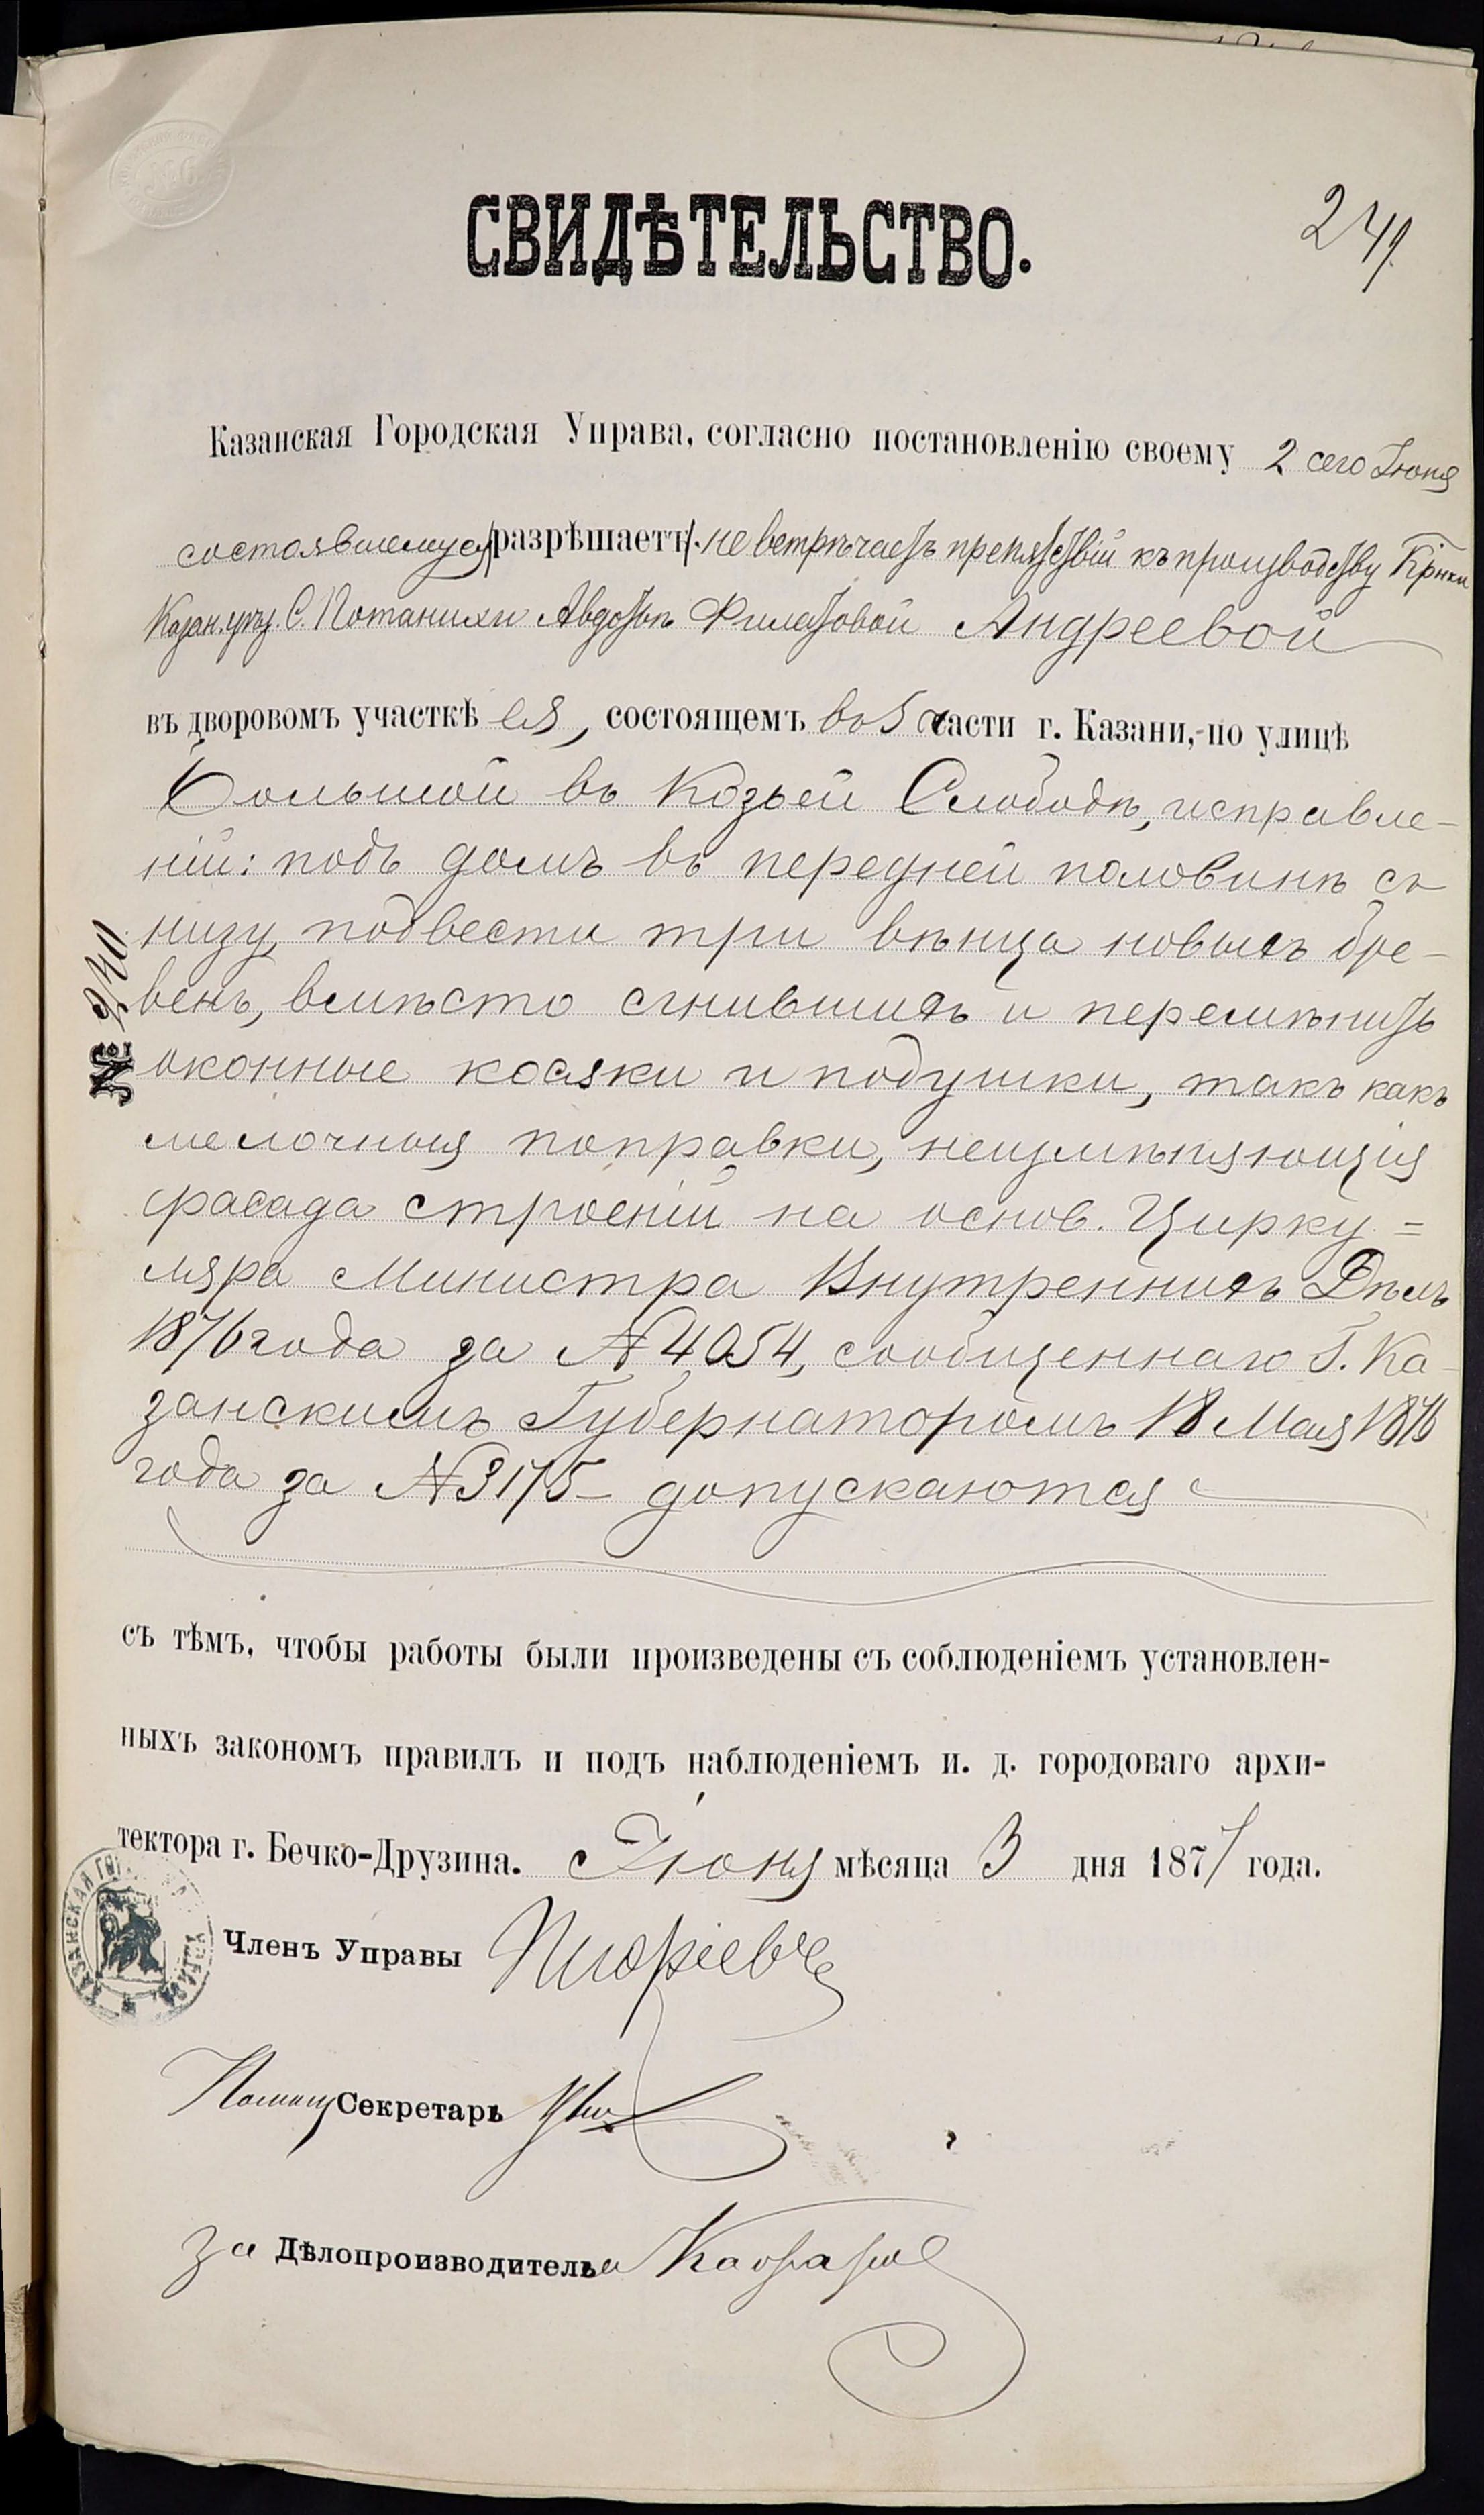 СВИДѢТЕЛЬСТВО.
241.
Казанская Городская Управа, согласно постановленію своему 2 сего Іюня
состоявшемуся (разрѣшаетъ). не встрѣчаетъ препятствій къ производству Кр-нки
Казан. уѣз. С. Потанихи Авдотьѣ Филатовой Андреевой
въ дворовомъ участкѣ ея, состоящемъ во 5 части г. Казани, по улицѣ
Большой въ Козьей Слободѣ, исправле-
ній: подъ домъ въ передней половинѣ съ
низу, подвести три вѣнца новыхъ бре-
венъ, вмѣсто сгнившихъ и перемѣнить
оконные косяки и подушки, такъ какъ
мелочныя поправки, неизмѣняющія
фасада строеній на основ. Цирку=
ляра Министра Внутреннихъ Дѣлъ
1876 года за № 4054, сообщеннаго Г. Ка-
занскимъ Губернаторомъ 18 Мая 1876
года за № 3175 – допускаются
№ 240
съ тѣмъ, чтобы работы были произведены съ соблюденіемъ установлен-
ныхъ закономъ правилъ и подъ наблюденіемъ и. д. городоваго архи-
тектора г. Бечко-Друзина. Іюня мѣсяца 3 дня 1877 года.
Членъ Управы
Помощ Секретарь
За Дѣлопроизводителя